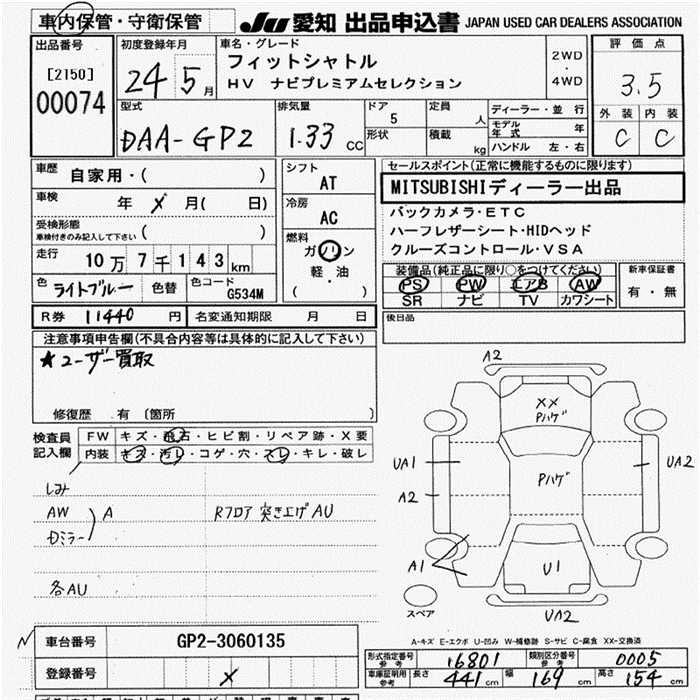 車内保管・守衛保管
JU 愛知 出品申込書 JAPAN USED CAR DEALERS ASSOCIATION
出品番号
[2150]
00074
初度登録年月
24 5月
車名・グレード
フィットシャトル
HV ナビプレミアムセレクション
2WD
・
4WD
評価点
3.5
外装 内装
C C
型式
DAA-GP2
排気量
1.33 CC
ドア
5
形状
定員
人
積載
kg
ディーラー・並行
モデル年式 年
ハンドル 左・右
車歴
自家用・( )
車検
年 月( 日)
受検形態
車検付きのみ記入して下さい ( )
走行
10万7千143km
色
ライトブルー
色替
色コード
G534M
シフト
AT
冷房
AC
燃料
ガソリン
軽・油
( )
セールスポイント(正常に機能するものに限ります)
MITSUBISHIディーラー出品
バックカメラ・ETC
ハーフレザーシート・HIDヘッド
クルーズコントロール・VSA
装備品(純正品に限り○をつけてください)
PS PW エアB AW
SR ナビ TV カワシート
新車保証書
有・無
R券 11440 円
名変通知期限 月 日
後日品
注意事項申告欄(不具合内容等は具体的に記入して下さい)
★ユーザー買取
修復歴 有 〔箇所 〕
検査員
記入欄
FW キズ・飛石・ヒビ割・リペア跡・X要
内装 キズ・汚レ・コゲ・穴・スレ・キレ・破レ
しみ
AW
Dミラー
A
Rフロア 突き上げ AU
各AU
A2
XX
Pハゲ
UA1
Pハゲ
UA2
A2
A1
U1
スペア
UA2
A-キズ E-エクボ U-凹み W-補修跡 S-サビ C-腐食 XX-交換済
車台番号 GP2-3060135
登録番号
形式指定番号
参考
16801
類別区分番号
参考
0005
車庫証明用
参考
長さ 441 cm 幅 169 cm 高さ 154 cm